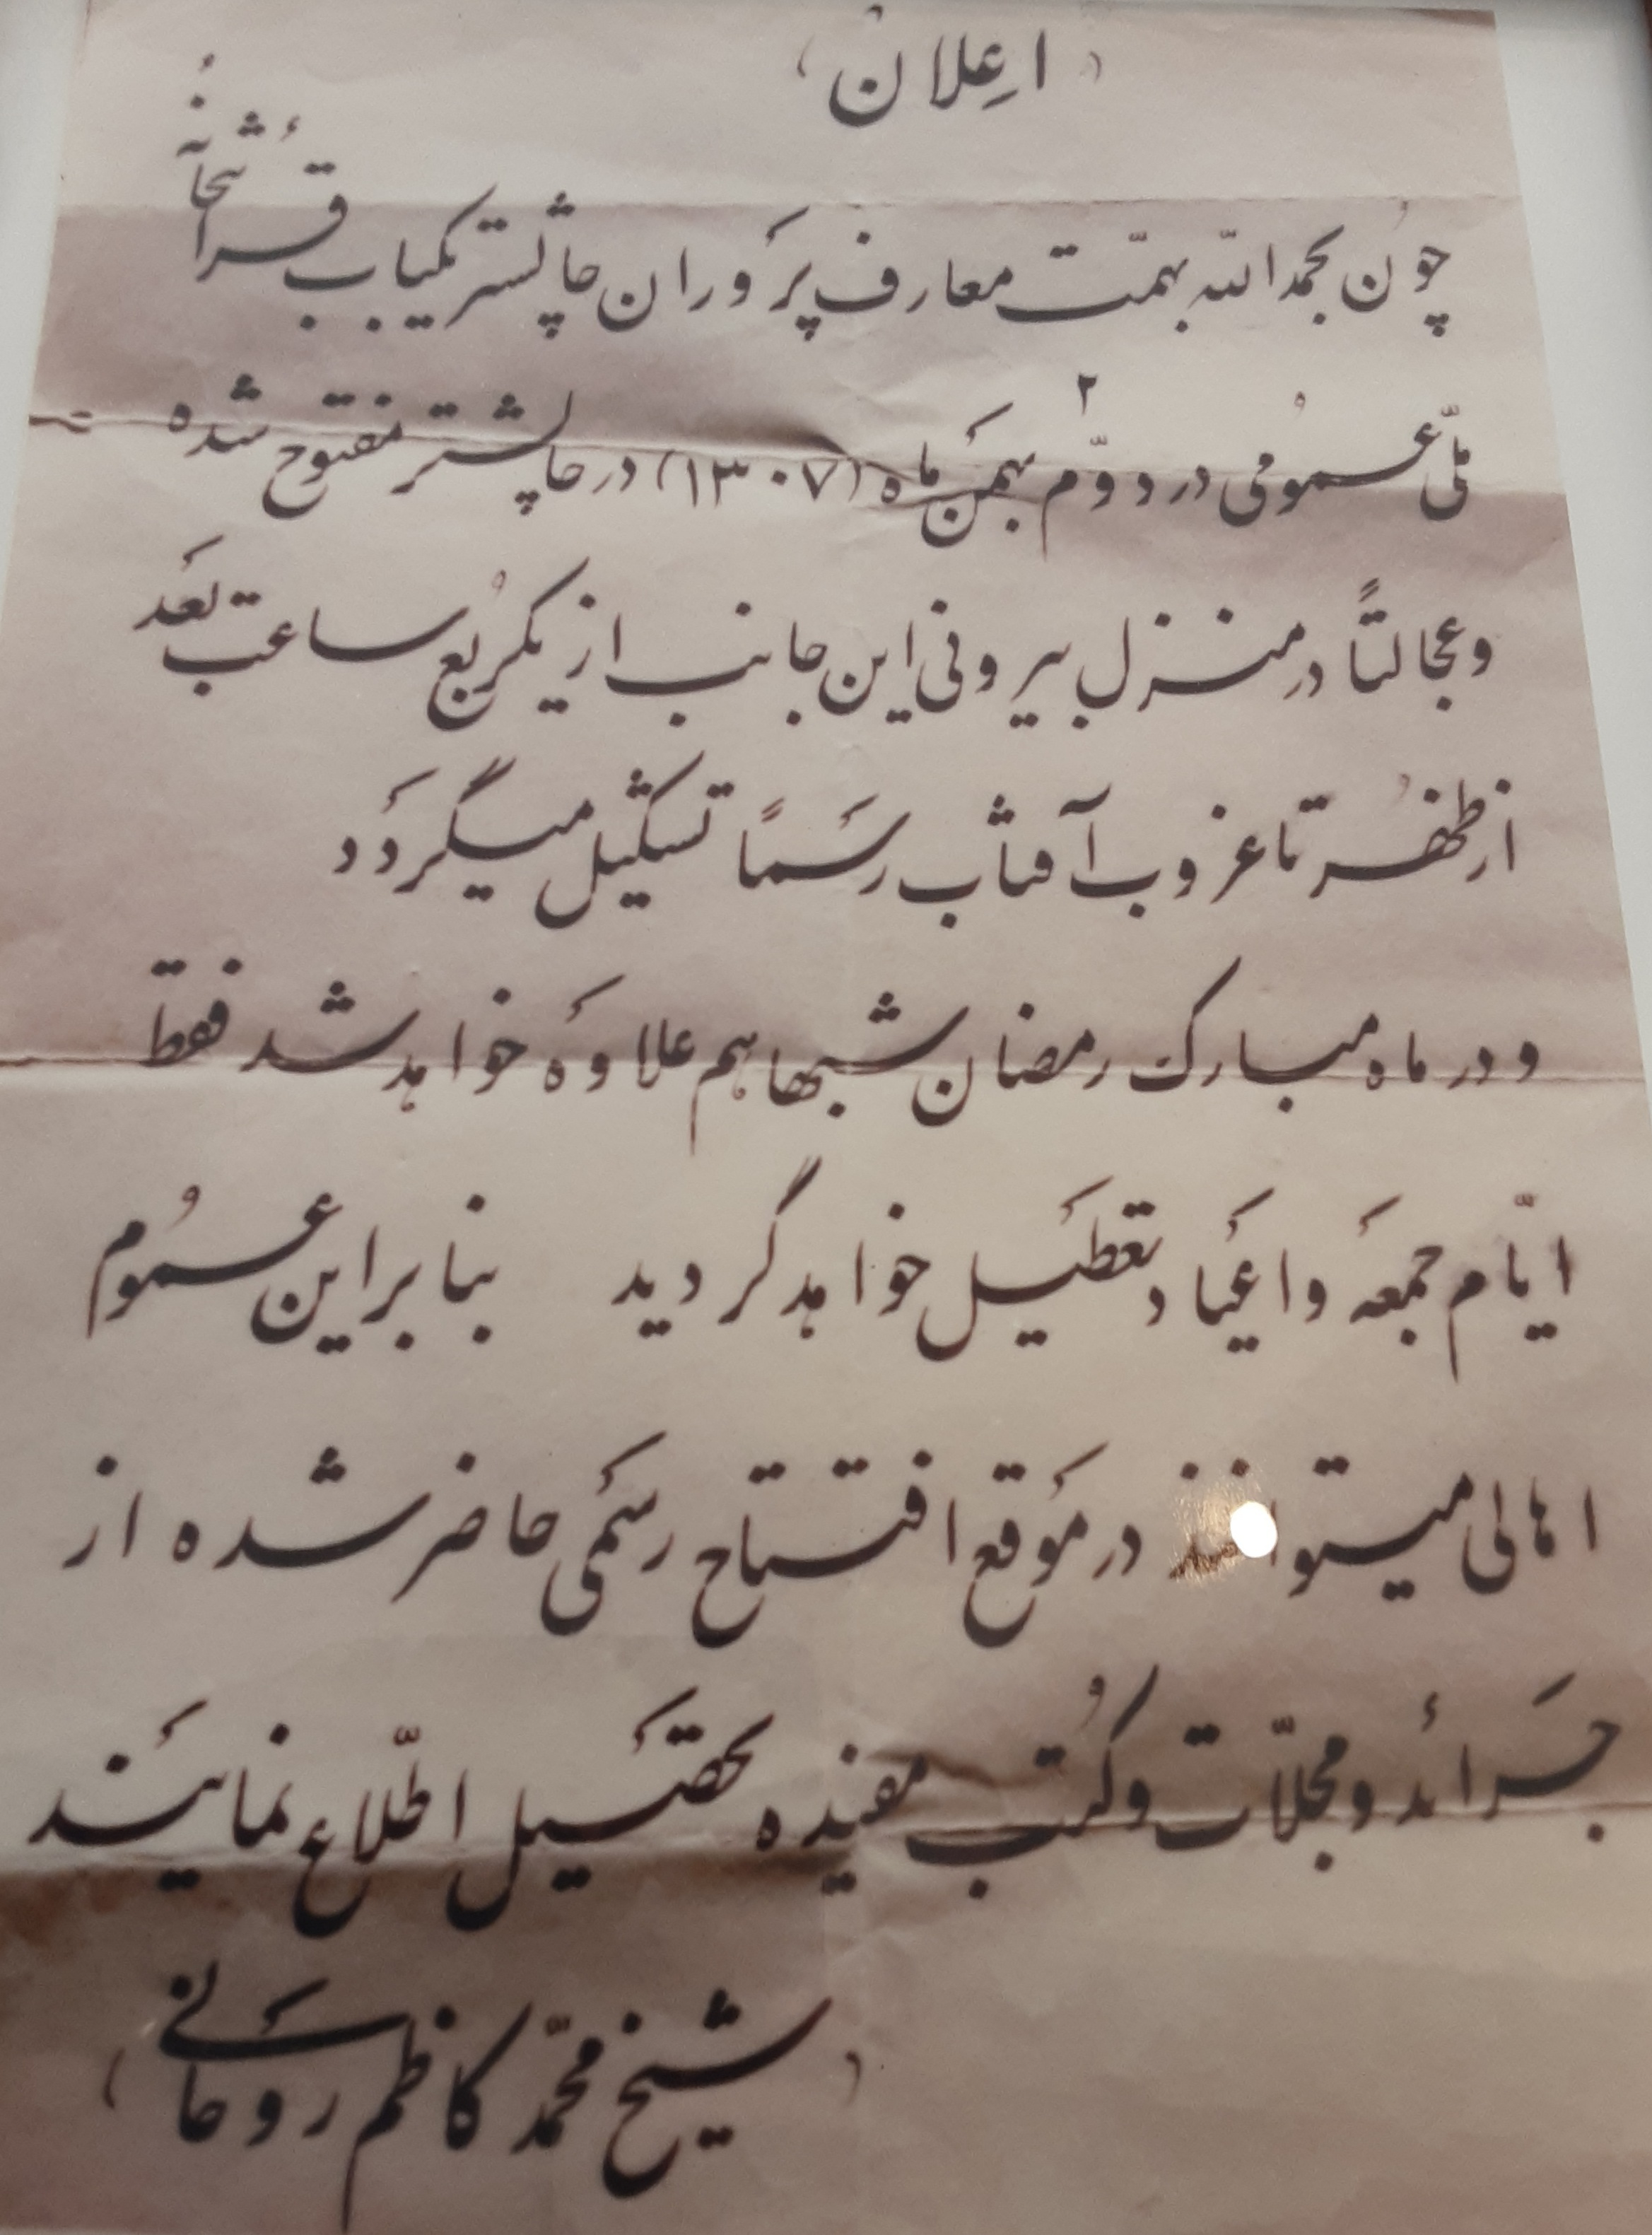 (اعلان)
چون بحمدالله بهمّت معارف پروران چالشتر یکباب قرائتخانهٔ
ملّی عمومی در دوّم ۲ بهمن ماه (۱۳۰۷) در چالشتر مفتوح شده
و عجالتاً در منزل بیرونی این جانب از یکربع ساعت بعد
از ظهر تا غروب آفتاب رسماً تشکیل میگردد
و در ماه مبارک رمضان شبها هم علاوه خواهد شد فقط
ایّام جمعه و اعیاد تعطیل خواهد گردید بنابراین عموم
اهالی میتوانند در موقع افتتاح رسمی حاضر شده از
جرائد و مجلّات و کتب مفیده تحصیل اطّلاع نمایند
(شیخ محمّد کاظم روحانی)